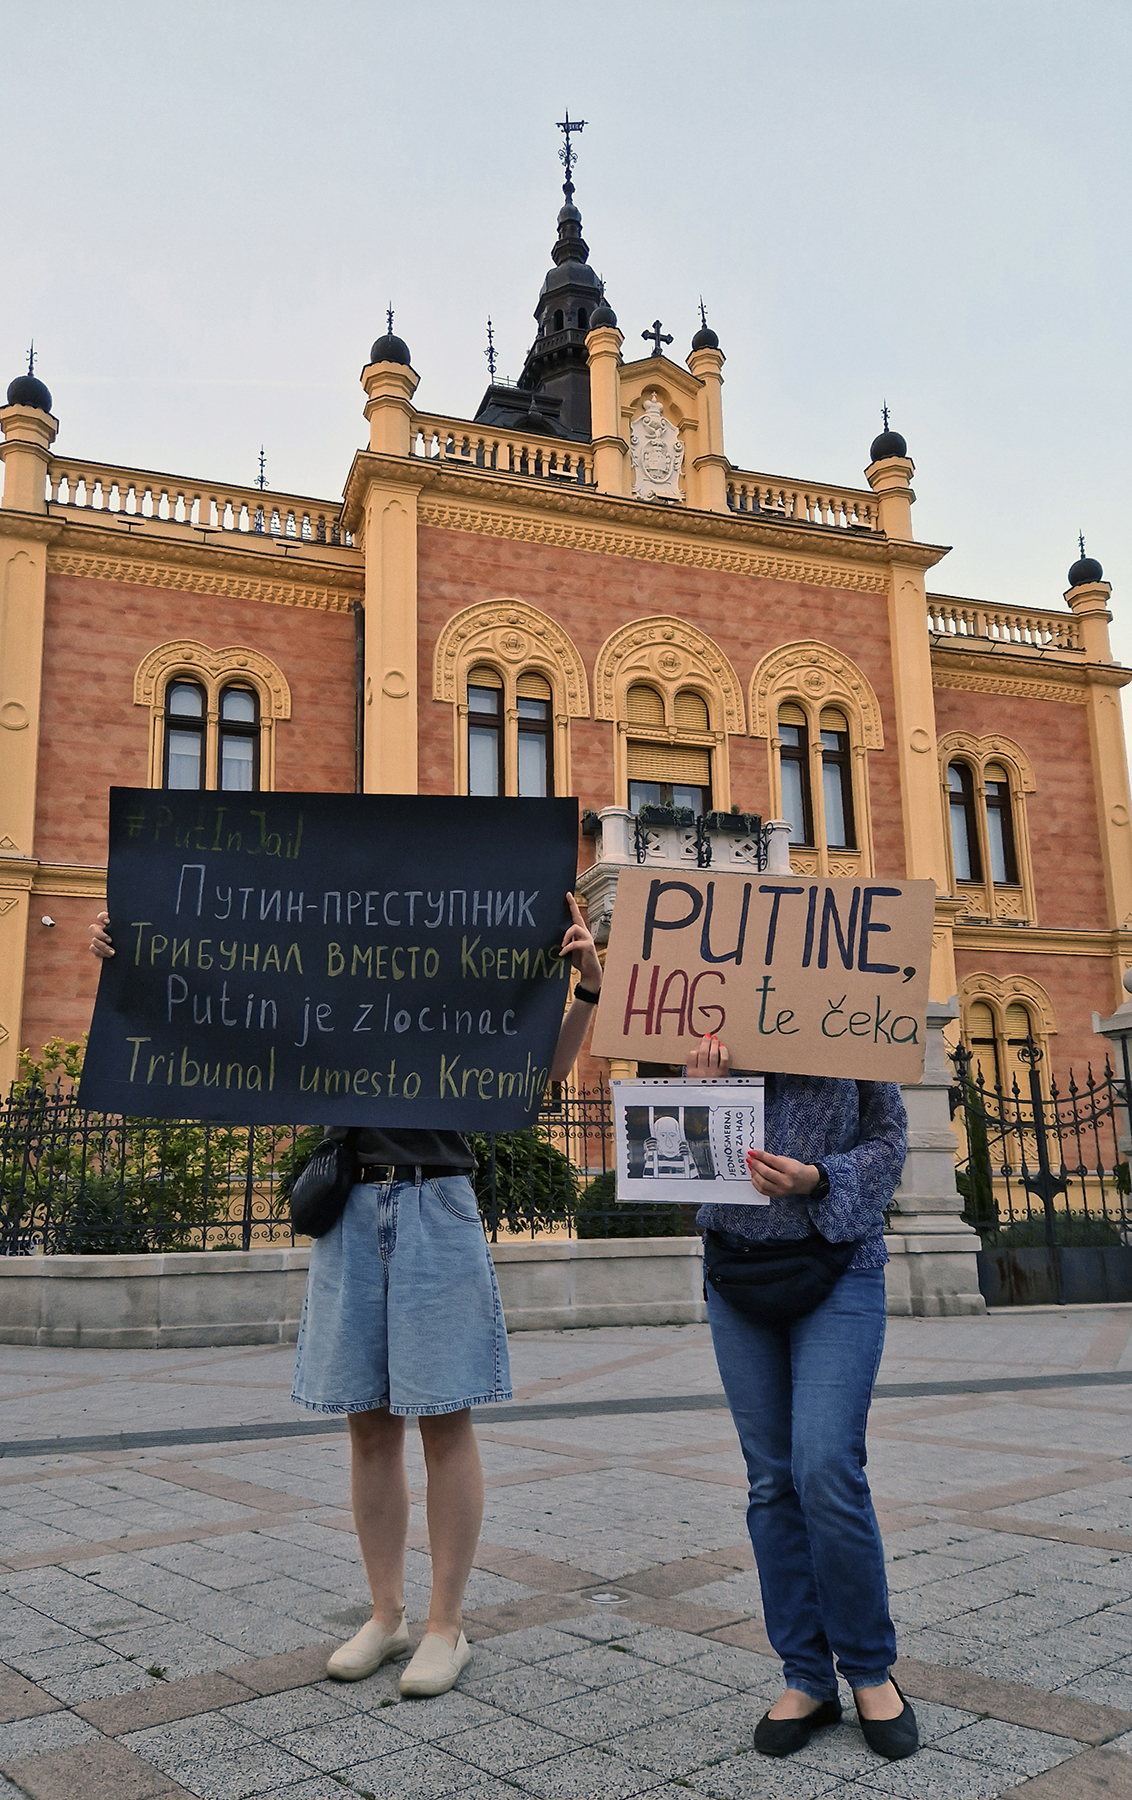 #PutInJail
Путин-преступник
Трибунал вместо Кремля
Putin je zlocinac
Tribunal umesto Kremlja
PUTINE,
HAG te čeka
JEDNOSMERNA
KARTA ZA HAG